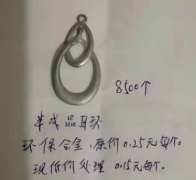 8500个
半成品耳环
环保合金,原价0.25元每个.
现低价处理 0.15元每个.